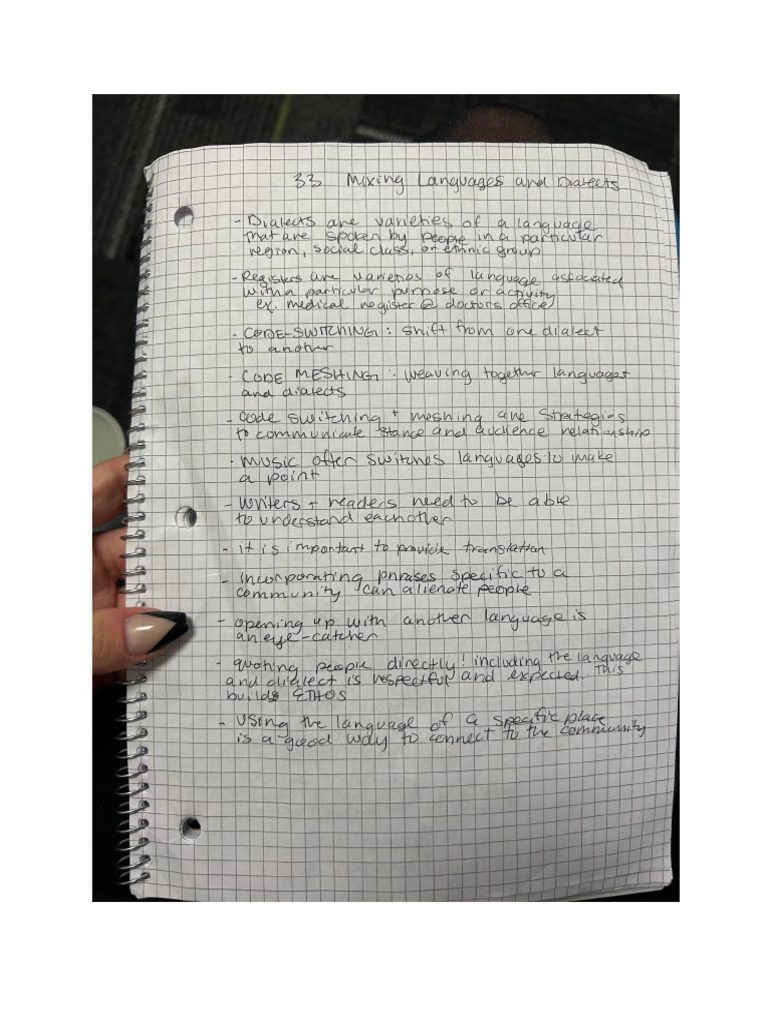 33 Mixing Languages and Dialects
- Dialects are varieties of a language
that are spoken by people in a particular
region, social class, or ethnic group
- Registers are varieties of language associated
with a particular purpose or activity
ex. medical register @ doctors office
- CODE-SWITCHING: shift from one dialect
to another
- CODE MESHING: weaving together languages
and dialects
- Code switching + meshing are strategies
to communicate stance and audience relationship
- music often switches languages to make
a point
- writers + readers need to be able
to understand eachother
- it is important to provide translation
- incorporating phrases specific to a
community can alienate people
- opening up with another language is
an eye-catcher
- quoting people directly! including the language
and dialect is respectful and expected. This
builds ETHOS
- Using the language of a specific place
is a good way to connect to the community